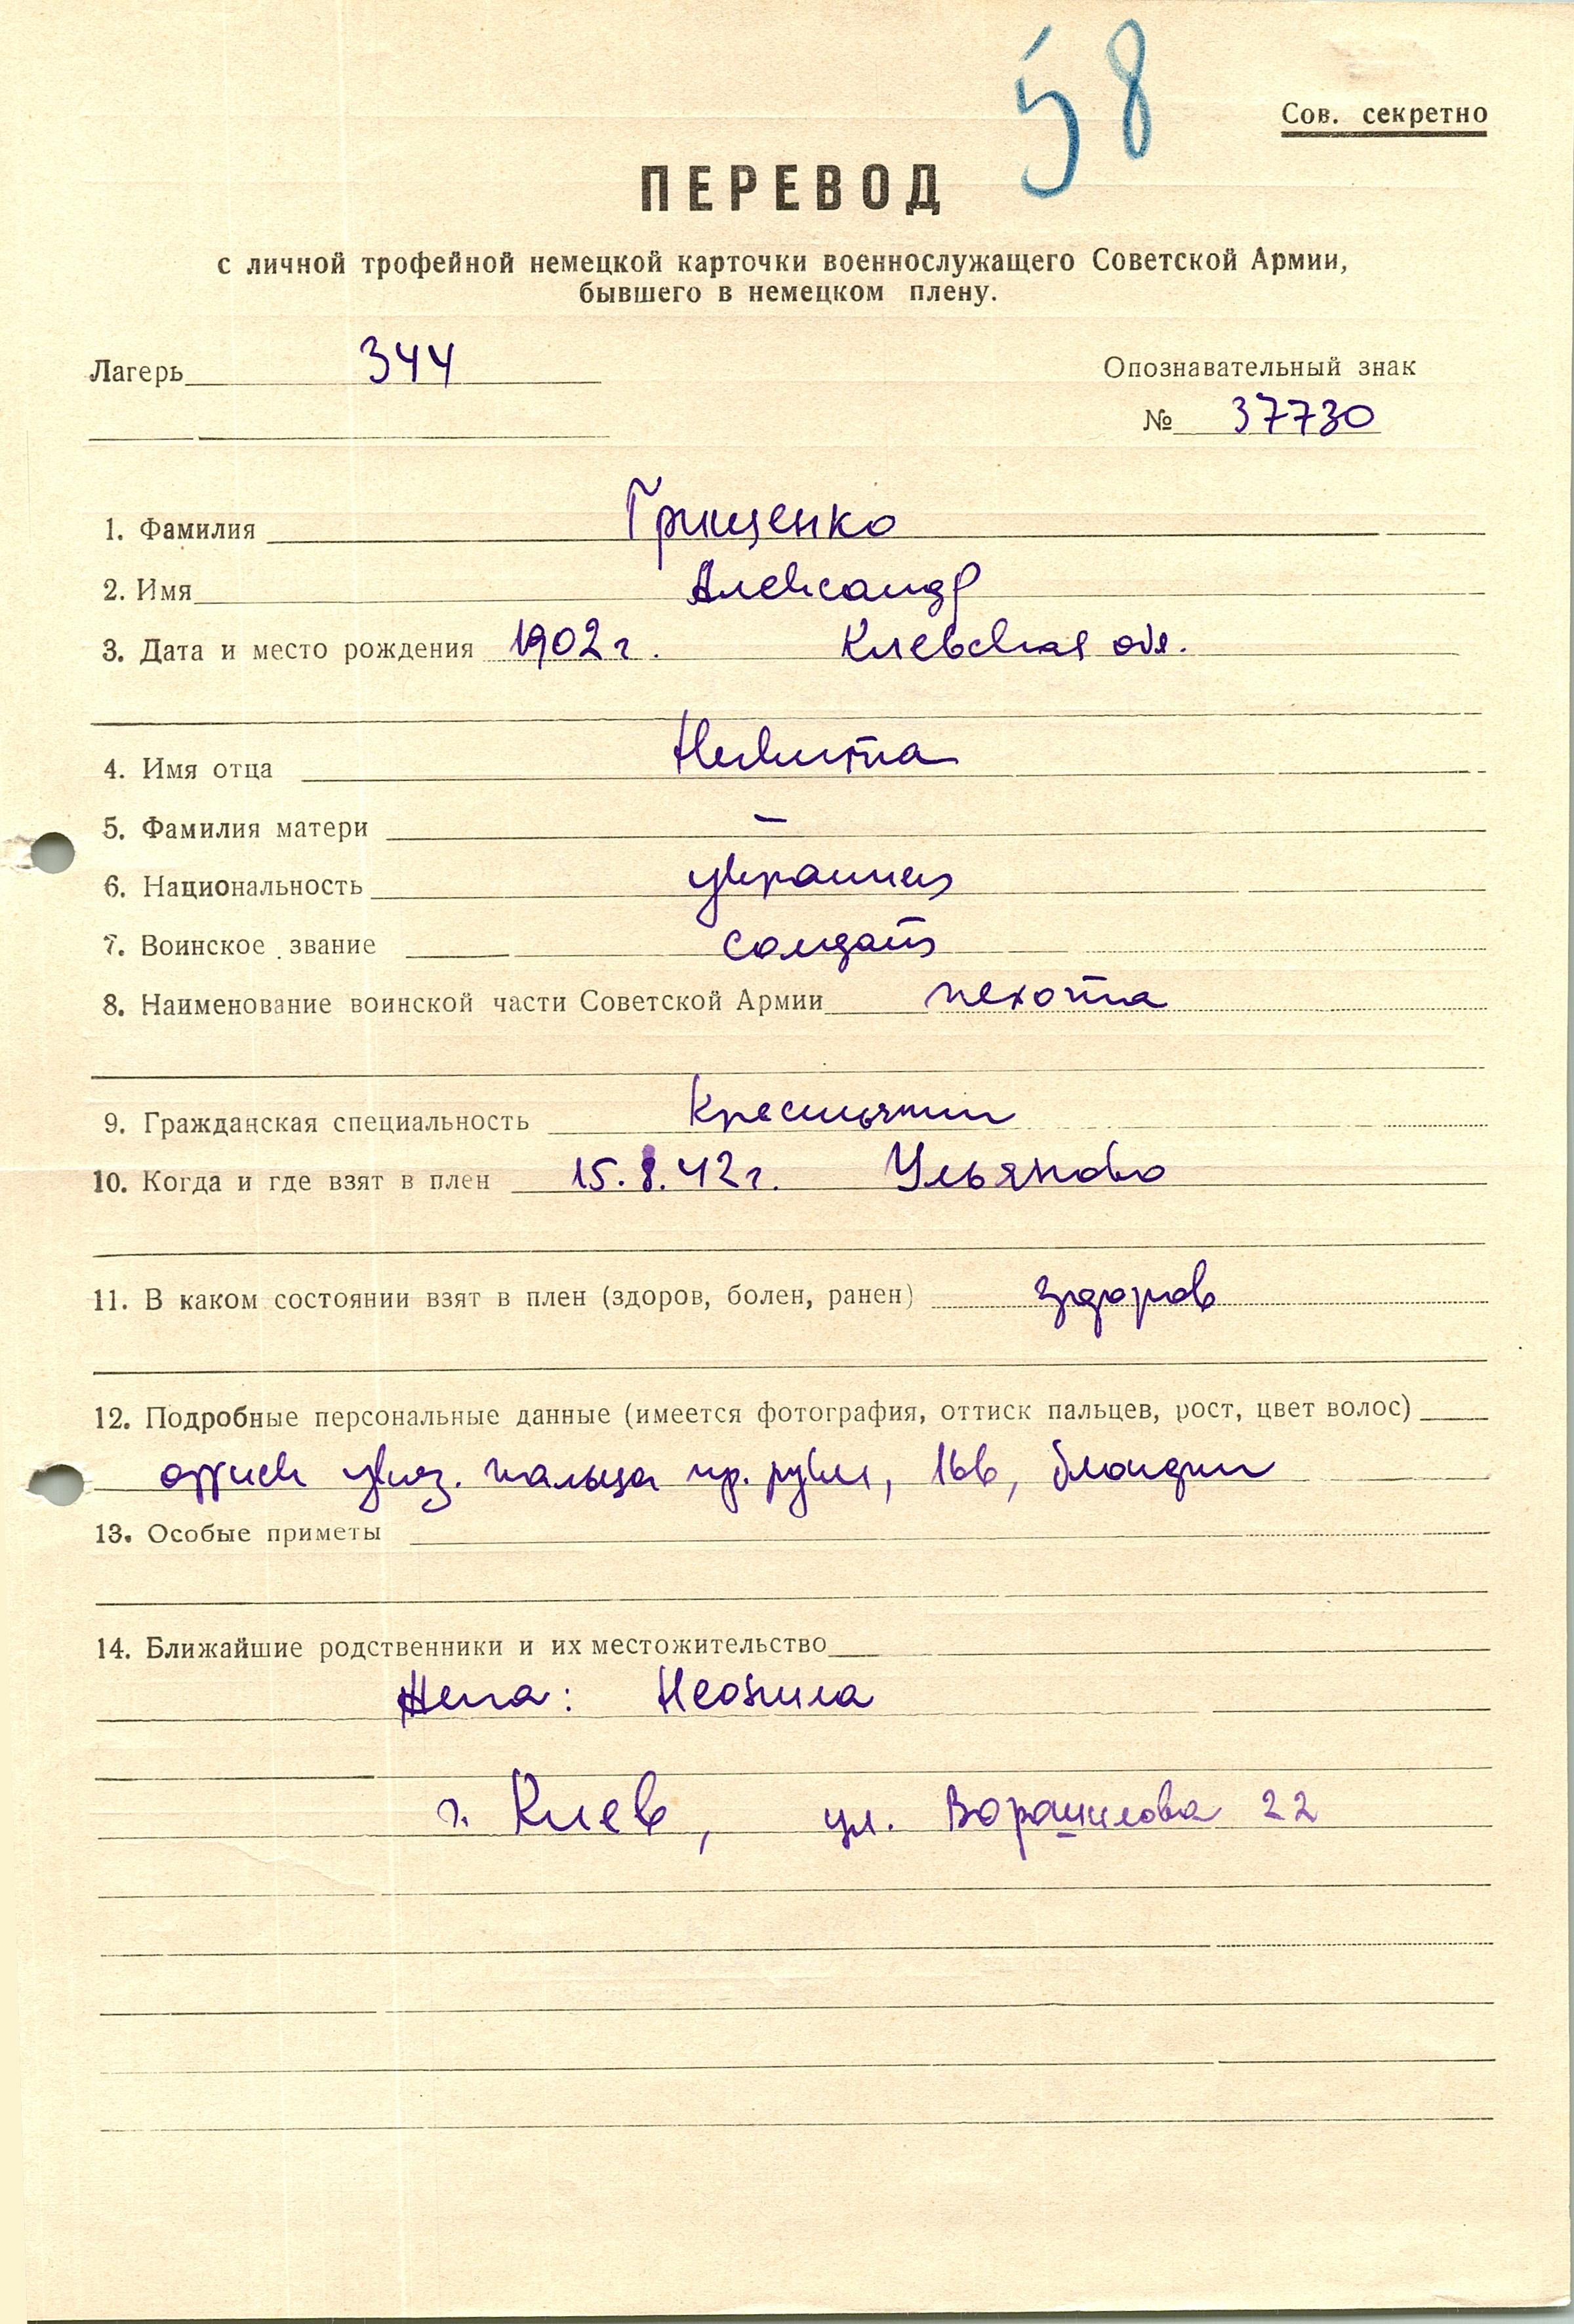 58
Сов. секретно
ПЕРЕВОД
с личной трофейной немецкой карточки военнослужащего Советской Армии,
бывшего в немецком плену.
Лагерь 344
Опознавательный знак
№ 37730
1. Фамилия Грищенко
2. Имя Александр
3. Дата и место рождения 1902 г. Киевская обл.
4. Имя отца Никита
5. Фамилия матери –
6. Национальность украинец
7. Воинское звание солдат
8. Наименование воинской части Советской Армии пехота
9. Гражданская специальность Крестьянин
10. Когда и где взят в плен 15.8.42 г. Ульяново
11. В каком состоянии взят в плен (здоров, болен, ранен) здоров
12. Подробные персональные данные (имеется фотография, оттиск пальцев, рост, цвет волос)
оттиск указ. пальца пр. руки, 166, блондин
13. Особые приметы
14. Ближайшие родственники и их местожительство
Жена: Неонила
г. Киев, ул. Ворашилова 22